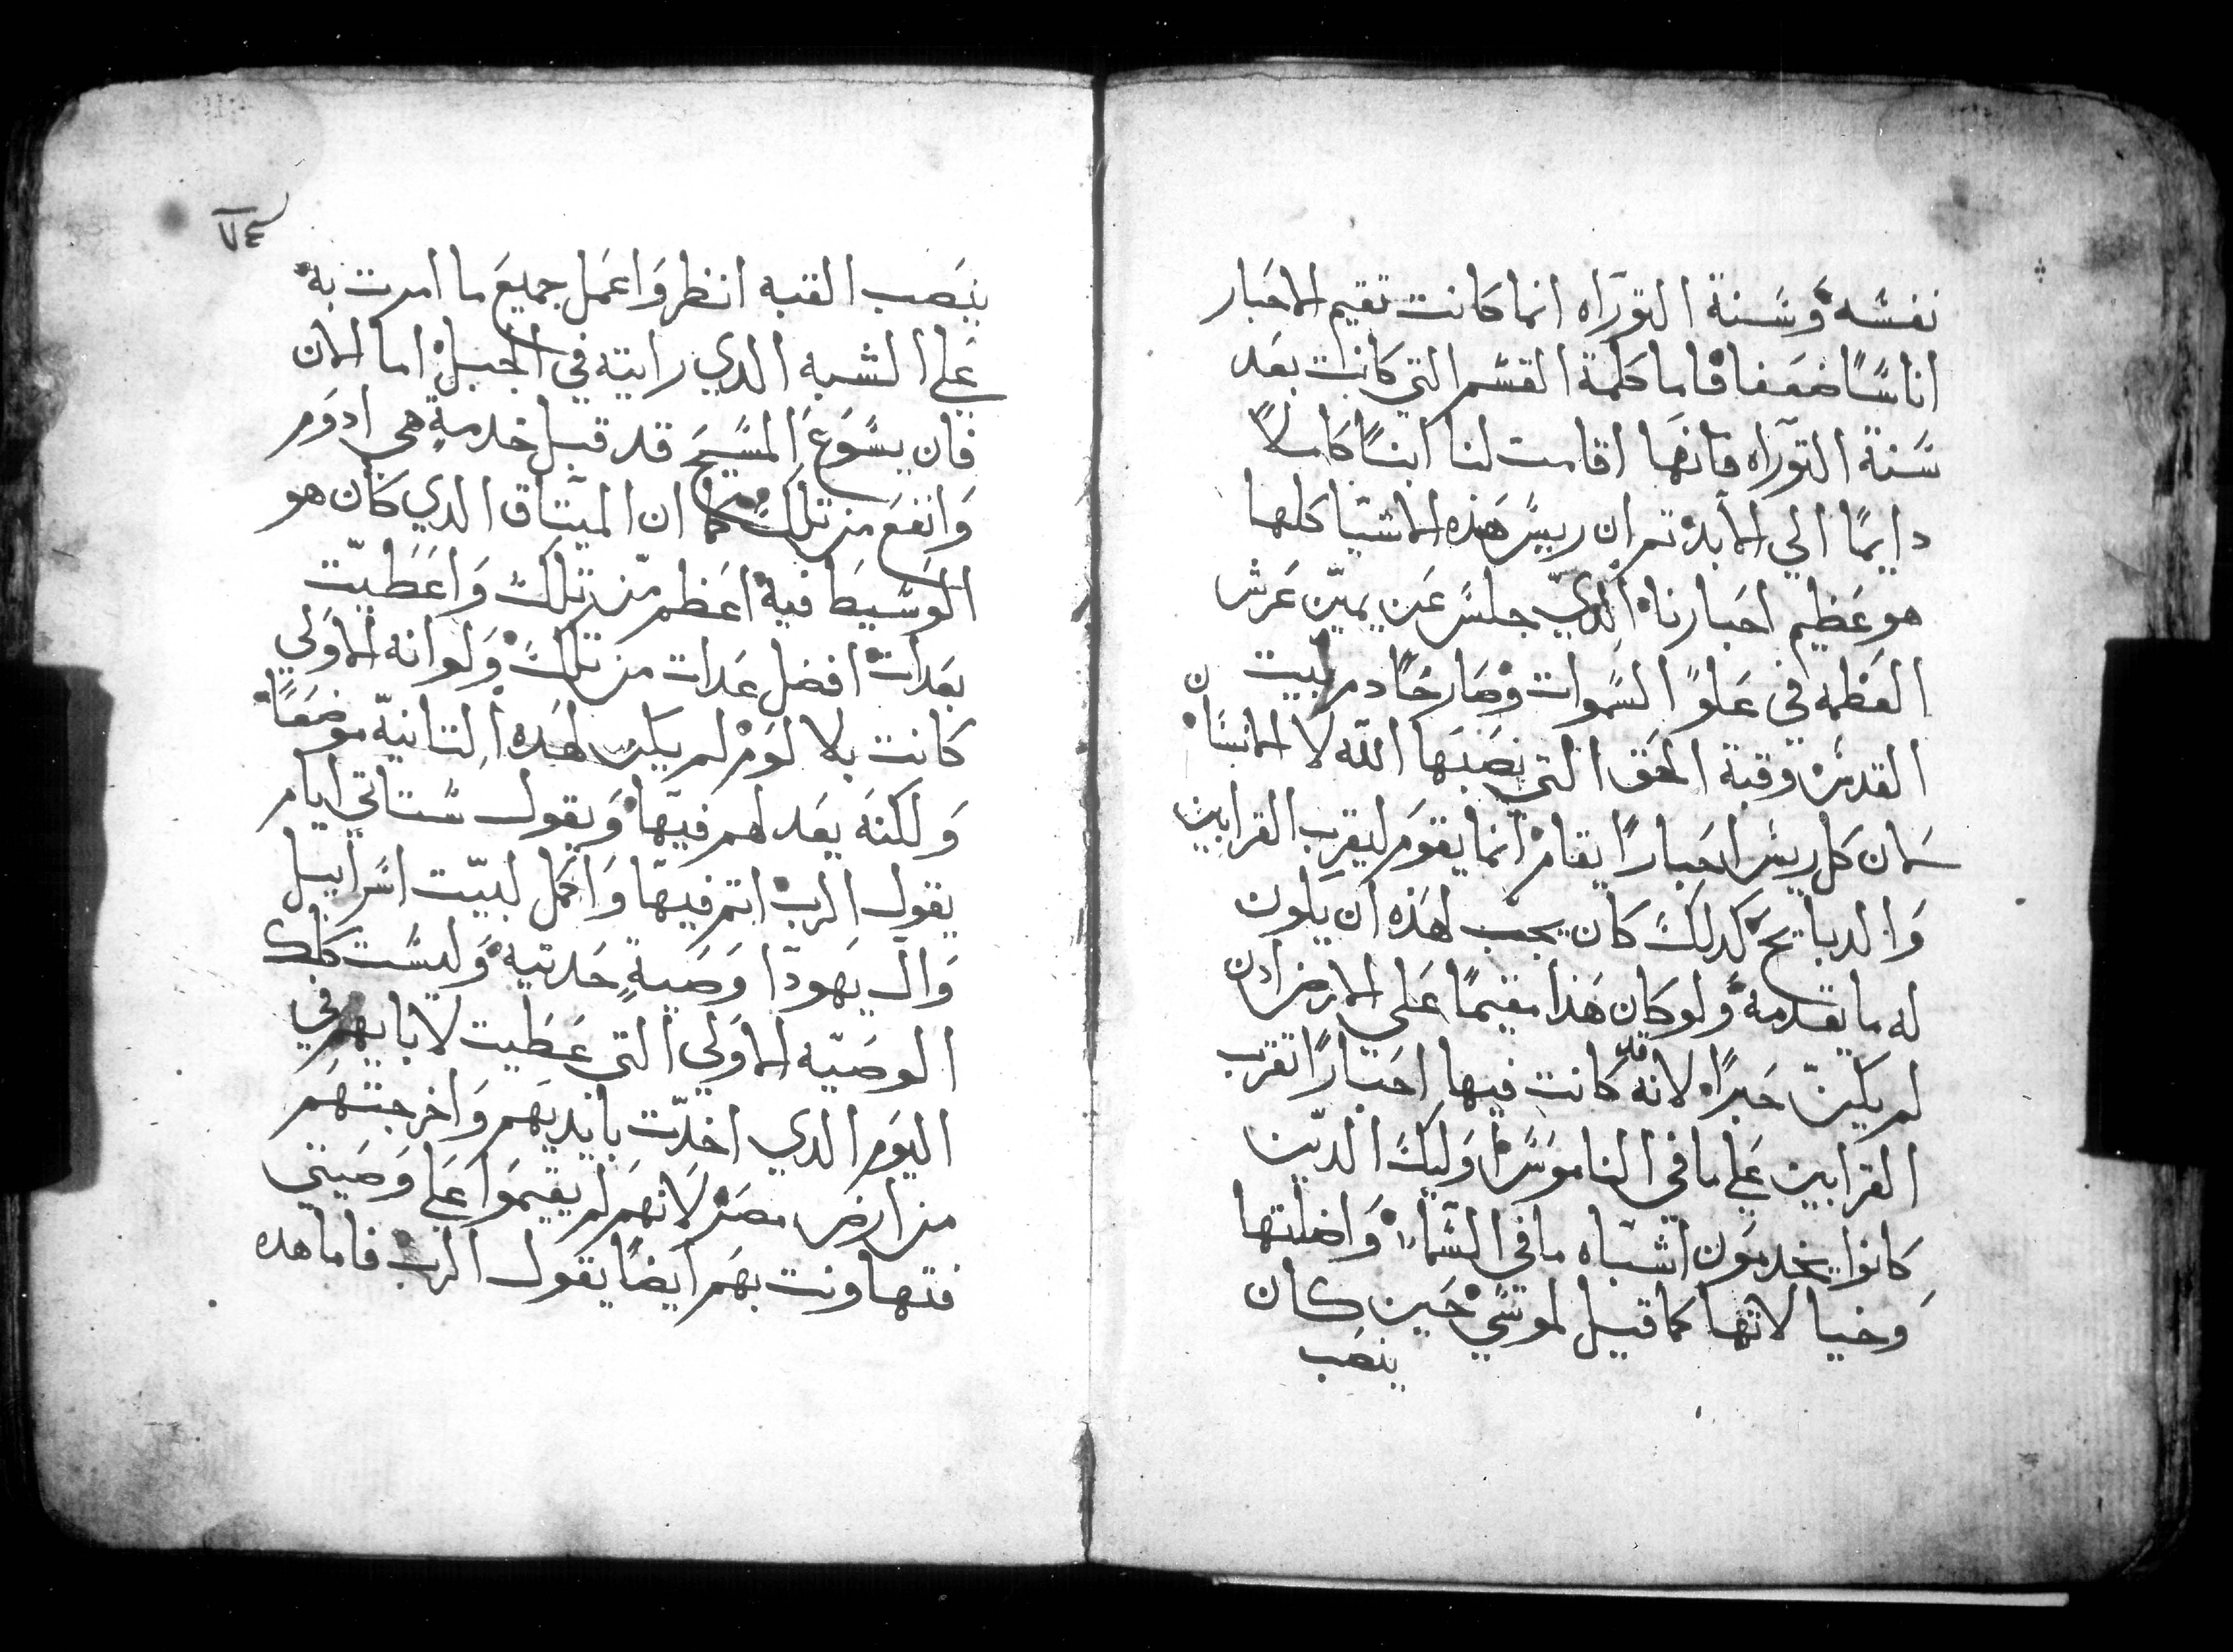 نفسه وسنة التوراه انما كانت تقيم الاحبار
اناسًا ضعفا فاما كلمة القسم التي كانت بعد
سنة التوراه فانها اقامت لنا ابنًا كاملاً
دايمًا الي الابد ثم ان رييس هذه الاشيا كلها
هو عظيم احبارنا الدي جلس عن يمين عرش
العظمه في علو السموات وصار خادم لبيت
القدس وقبة الحق التي نصبها الله لا الانسان
لان كل رييس احبارًا يقام انما يقوم ليقرب القرابين
والدبايح كدلك كان يجب لهذه ان يكون
له ما يقدمه ولو كان هذا مقيمًا علي الارض ادن
لم يكن حبرًا لانه قد كانت فيها احبارًا تقرب
القرابين علي ما في الناموس اوليك الدين
كانوا يخدمون اشباه ما في السماء واضلتها
وخيالاتها كما قيل لموسي حين كان
ينصب
٧٤
ينصب القبه انظر واعمل جميع ما امرت به
علي الشبه الدي رايته في الجبل اما الان
فان يسوع المسيح قد قبل خدمة هي ادوم
وانفع من تلك كما ان الميتاق الدي كان هو
الوسيط فيه اعظم من تلك واعطيت
بعدات افضل عدات من تلك ولو انه الاولي
كانت بلا لوم لم يكن لهده التانية موضعًا
ولكنه يعد لهم فيها ويقول ستاتي ايام
يقول الرب اتم فيها واكمل لبيت اسراييل
وال يهودا وصية حديثه وليست كتلك
الوصيه الاولي التي عطيت لابايهم في
اليوم الدي اخدت بايديهم واخرجتهم
من ارض مصر لانهم لم يقيموا علي وصيتي
فتهاونت بهم ايضًا يقول الرب فاما هده